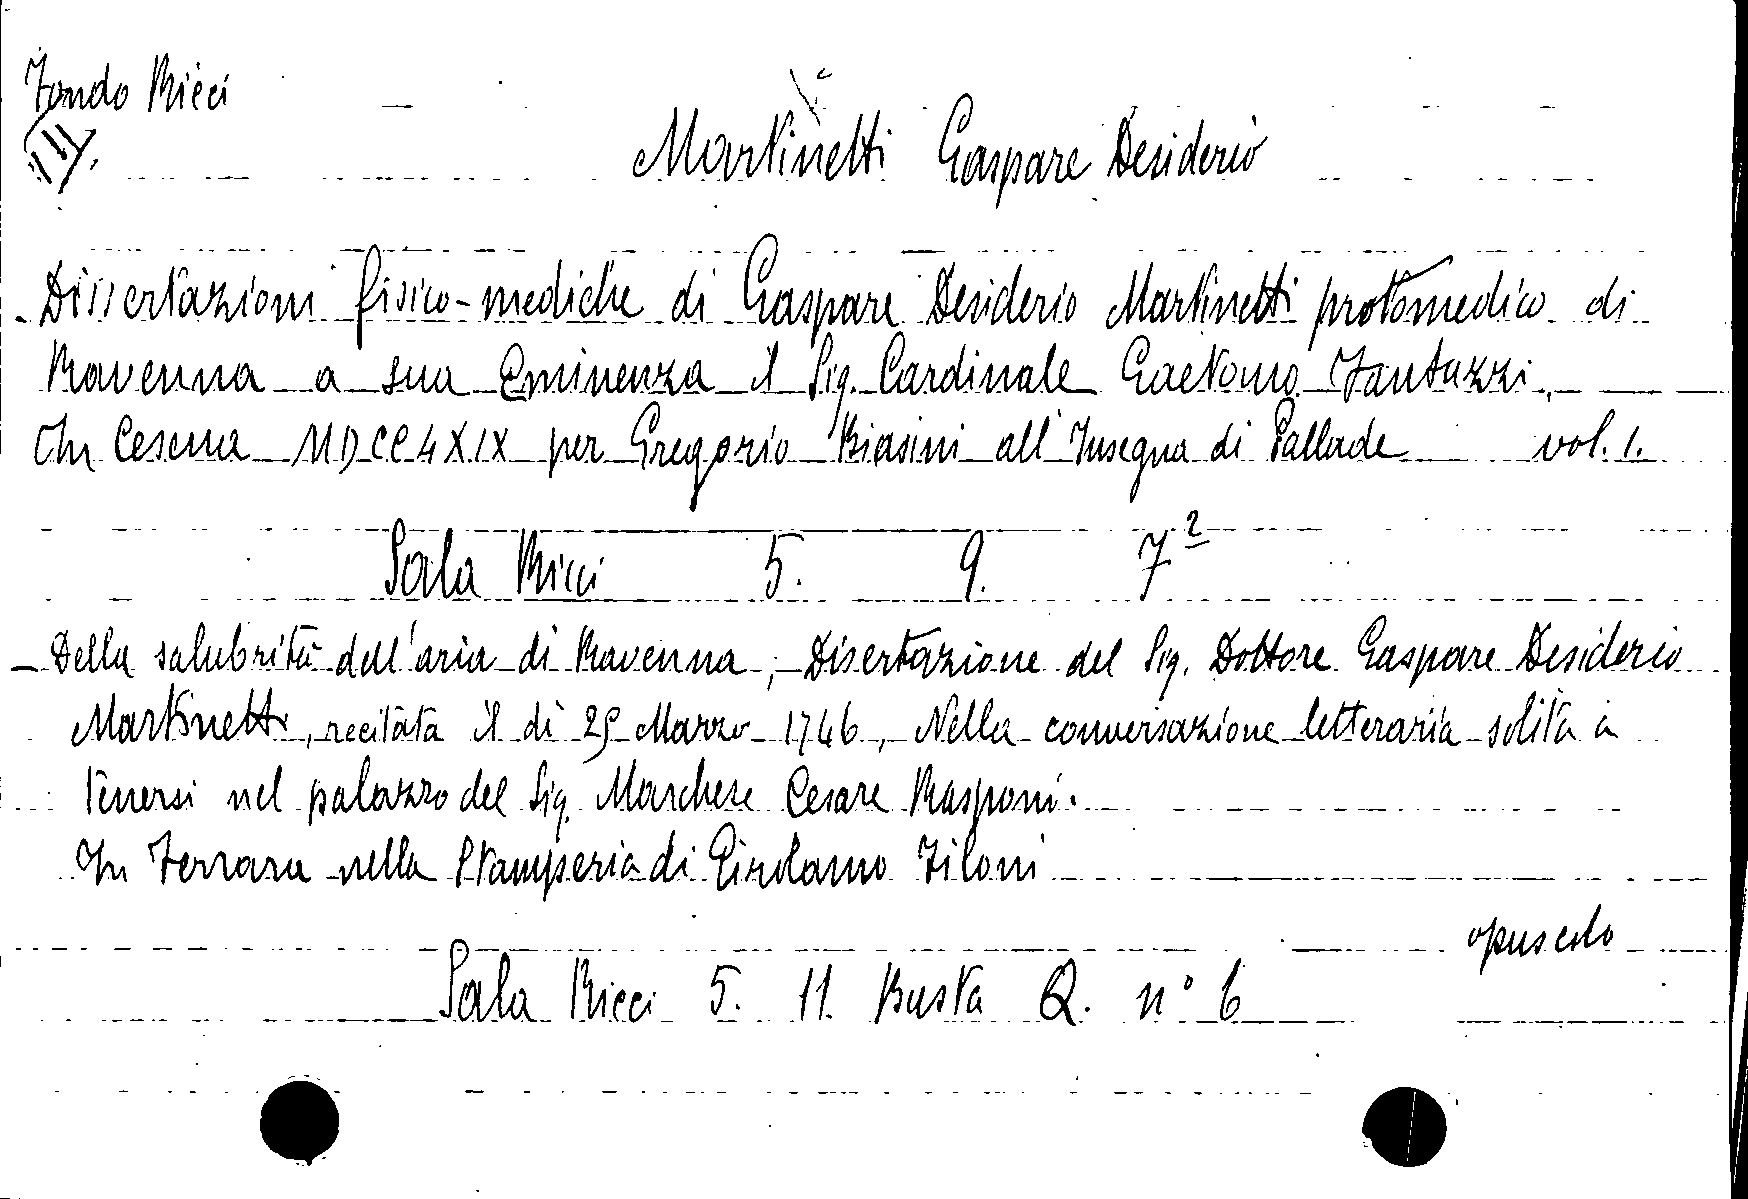 Fondo Ricci
Martinetti Gaspare Desiderio
- Dissertazioni fisico-mediche di Gaspare Desiderio Martinetti protomedico di
Ravenna a sua Eminenza il Sig. Cardinale Gaetano Fantuzzi.
In Cesena MDCCLXIX per Gregorio Biasini all'Insegna di Pallade vol. 1.
Sala Ricci 5. 9. 7²
- Della salubrità dell'aria di Ravenna, Disertazione del Sig. Dottore Gaspare Desiderio
Martinetti, recitata il dì 29 Marzo 1746, Nella conversazione letteraria solita a
tenersi nel palazzo del Sig. Marchese Cesare Rasponi.
In Ferrara nella Stamperia di Girolamo Filoni
opuscolo
Sala Ricci 5. 11. Busta Q. n° 6